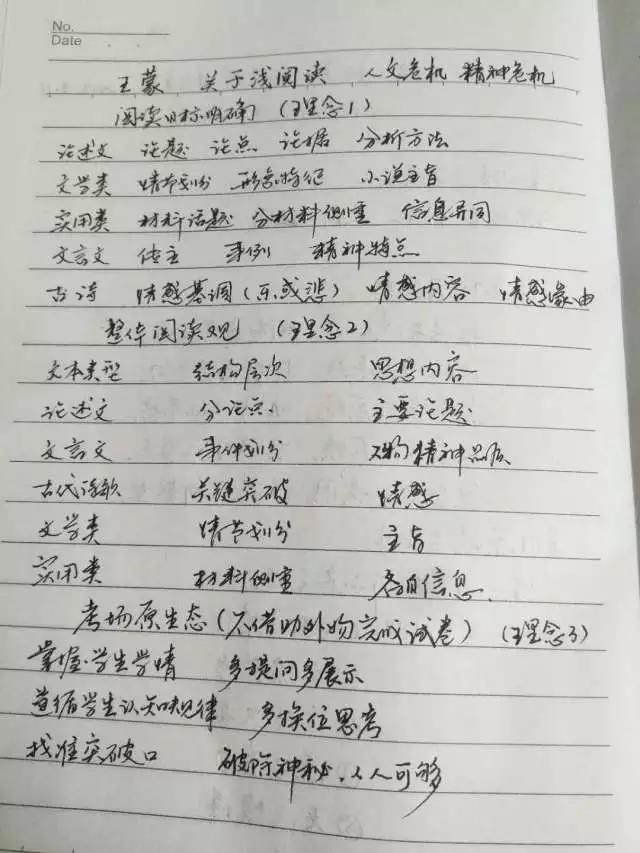 No.
Date
王蒙 关于浅阅读 人文危机 精神危机
阅读目标明确 (理念1)
论述文 论题 论点 论据 分析方法
文学类 情节划分 形象特征 小说主旨
实用类 材料话题 分材料侧重 信息异同
文言文 传主 事例 精神特点
古诗 情感基调(乐或悲) 情感内容 情感缘由
整体阅读观 (理念2)
文本类型 结构层次 思想内容
论述文 分论点 主要论题
文言文 事件划分 人物精神品质
古代诗歌 关键突破 情感
文学类 情节划分 主旨
实用类 材料侧重 各自信息
考场原生态(不借助外物完成试卷) (理念3)
掌握学生学情 多提问多展示
遵循学生认知规律 多换位思考
找准突破口 破除神秘,人人可够